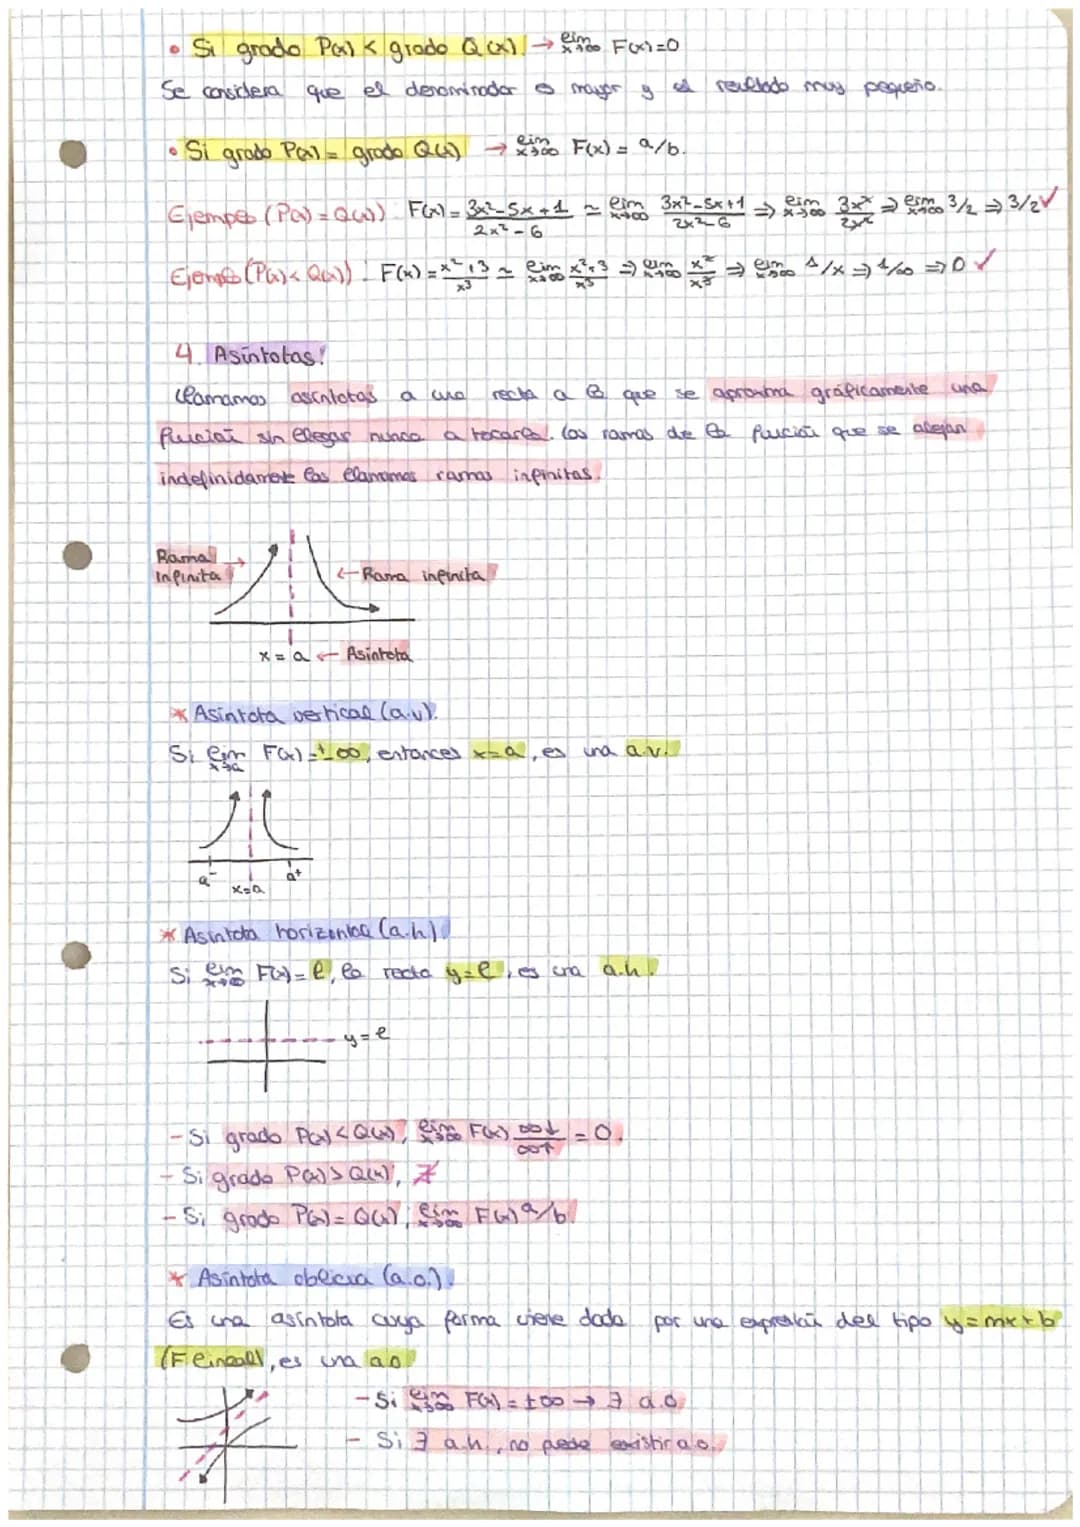 • Si grado P(x) < grado Q(x) → lim x→∞ F(x)=0
Se considera que el denominador es mayor y el resultado muy pequeño.
• Si grado P(x) = grado Q(x) → lim x→∞ F(x) = a/b.
Ejemplo (P(x) = Q(x)) F(x) = 3x²-5x+1 / 2x²-6 ≃ lim x→∞ 3x²-5x+1 / 2x²-6 ⇒ lim x→∞ 3x² / 2x² ⇒ lim x→∞ 3/2 ⇒ 3/2 ✓
Ejemplo (P(x) < Q(x)): F(x) = x²+3 / x³ ≃ lim x→∞ x²+3 / x³ ⇒ lim x→∞ x² / x³ ⇒ lim x→∞ 1/x ⇒ 1/∞ ⇒ 0 ✓
4. Asíntotas:
Llamamos asíntotas a una recta a la que se aproxima gráficamente una
función sin llegar nunca a tocarla. Las ramas de la función que se alejan
indefinidamente las llamamos ramas infinitas.
Rama infinita →
← Rama infinita
x = a ← Asíntota
* Asíntota vertical (a.v).
Si lim x→a F(x) = ±∞, entonces x=a, es una a.v.
a⁻ x=a a⁺
* Asíntota horizontal (a.h)
Si lim x→∞ F(x) = l, la recta y=l, es una a.h.
y=l
- Si grado P(x) < Q(x), lim x→∞ F(x) ∞↓ / ∞↑ = 0.
- Si grado P(x) > Q(x), ∄
- Si grado P(x) = Q(x), lim x→∞ F(x) a/b.
* Asíntota oblicua (a.o.).
Es una asíntota cuya forma viene dada por una expresión del tipo y=mx+b
(F lineal), es una a.o
- Si lim x→∞ F(x) = ±∞ → ∃ a.o.
- Si ∃ a.h., no puede existir a.o.